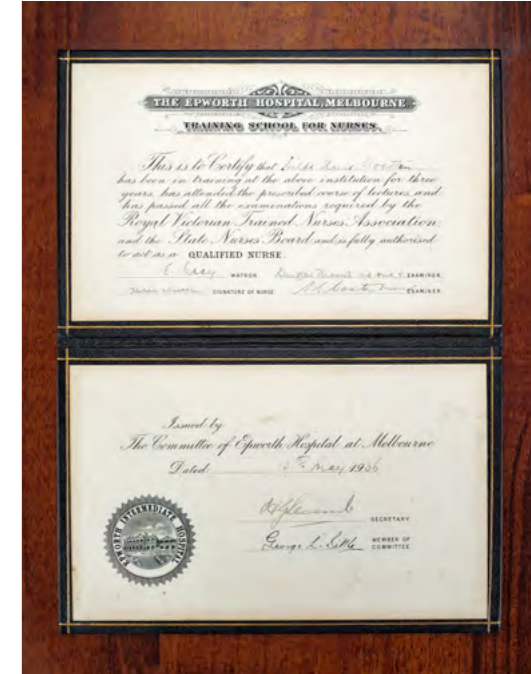 THE EPWORTH HOSPITAL, MELBOURNE.
TRAINING SCHOOL FOR NURSES.
This is to Certify that
has been in training at the above institution for three
years, has attended the prescribed course of lectures, and
has passed all the examinations required by the
Royal Victorian Trained Nurses Association,
and the State Nurses Board and is fully authorised
to act as a QUALIFIED NURSE.
MATRON EXAMINER.
SIGNATURE OF NURSE. EXAMINER.
Issued by
The Committee of Epworth Hospital at Melbourne
Dated May 1936
SECRETARY
George L. MEMBER OF
COMMITTEE
EPWORTH INTERMEDIATE HOSPITAL